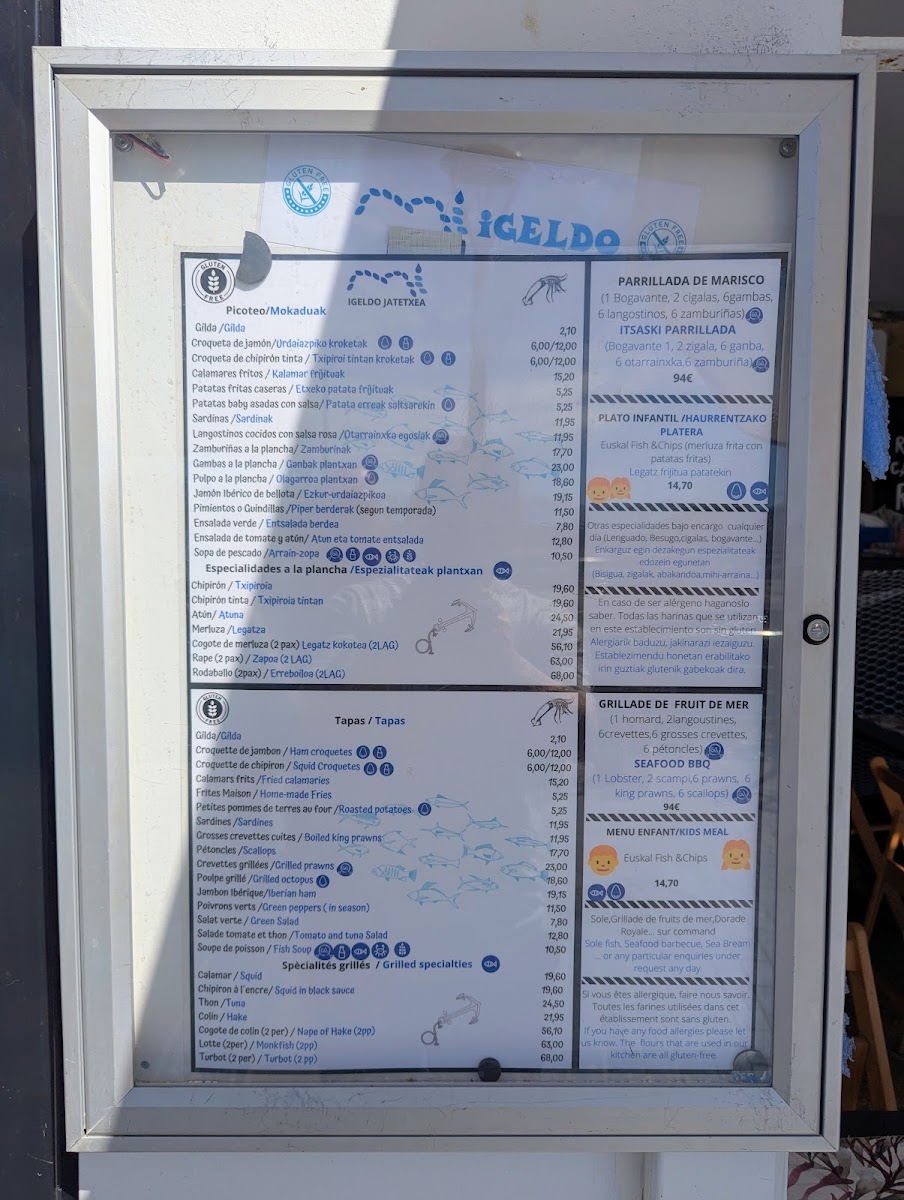 GLUTEN FREE
iGELDO
GLUTEN FREE
GLUTEN FREE
IGELDO JATETXEA
Picoteo/Mokaduak
Gilda /Gilda 2,10
Croqueta de jamón/Urdaiazpiko kroketak 6,00/12,00
Croqueta de chipirón tinta / Txipiroi tintan kroketak 6,00/12,00
Calamares fritos / Kalamar frijituak 15,20
Patatas fritas caseras / Etxeko patata frijituak 5,25
Patatas baby asadas con salsa/ Patata erreak saltsarekin 5,25
Sardinas /Sardinak 11,95
Langostinos cocidos con salsa rosa /Otarrainxka egosiak 11,95
Zamburiñas a la plancha/ Zamburinak 17,70
Gambas a la plancha / Ganbak plantxan 23,00
Pulpo a la plancha / Olagarroa plantxan 18,60
Jamón Ibérico de bellota / Ezkur-urdaiazpikoa 19,15
Pimientos o Guindillas /Piper berderak (segun temporada) 11,50
Ensalada verde / Entsalada berdea 7,80
Ensalada de tomate y atún/ Atun eta tomate entsalada 12,80
Sopa de pescado /Arrain-zopa 10,50
Especialidades a la plancha /Espezialitateak plantxan
Chipirón / Txipiroia 19,60
Chipirón tinta / Txipiroia tintan 19,60
Atún/ Atuna 24,50
Merluza /Legatza 21,95
Cogote de merluza (2 pax) Legatz kokotea (2LAG) 56,10
Rape (2 pax) / Zapoa (2 LAG) 63,00
Rodaballo (2pax) / Erreboiloa (2LAG) 68,00
PARRILLADA DE MARISCO
(1 Bogavante, 2 cigalas, 6gambas,
6 langostinos, 6 zamburiñas)
ITSASKI PARRILLADA
(Bogavante 1, 2 zigala, 6 ganba,
6 otarrainxka,6 zamburiña)
94€
PLATO INFANTIL /HAURRENTZAKO
PLATERA
Euskal Fish &Chips (merluza frita con
patatas fritas)
Legatz frijitua patatekin
14,70
Otras especialidades bajo encargo cualquier
día (Lenguado, Besugo,cigalas, bogavante...)
Enkarguz egin dezakegun espezialitateak
edozein egunetan
(Bisigua, zigalak, abakandoa,mihi-arraina...)
En caso de ser alérgeno haganoslo
saber. Todas las harinas que se utilizan
en este establecimiento son sin gluten
Alergiarik baduzu, jakinarazi iezaiguzu.
Establezimendu honetan erabilitako
irin guztiak glutenik gabekoak dira.
GLUTEN FREE
Tapas / Tapas
Gilda/Gilda 2,10
Croquette de jambon / Ham croquetes 6,00/12,00
Croquette de chipiron / Squid Croquetes 6,00/12,00
Calamars frits /Fried calamaries 15,20
Frites Maison / Home-made Fries 5,25
Petites pommes de terres au four /Roasted potatoes 5,25
Sardines /Sardines 11,95
Grosses crevettes cuites / Boiled king prawns 11,95
Pétoncles /Scallops 17,70
Crevettes grillées /Grilled prawns 23,00
Poulpe grillé /Grilled octopus 18,60
Jambon Ibérique/Iberian ham 19,15
Poivrons verts /Green peppers ( in season) 11,50
Salat verte / Green Salad 7,80
Salade tomate et thon /Tomato and tuna Salad 12,80
Soupe de poisson / Fish Soup 10,50
Spècialités grillés / Grilled specialties
Calamar / Squid 19,60
Chipiron à l'encre/ Squid in black sauce 19,60
Thon /Tuna 24,50
Colin / Hake 21,95
Cogote de colin (2 per) / Nape of Hake (2pp) 56,10
Lotte (2per) / Monkfish (2pp) 63,00
Turbot (2 per) / Turbot (2 pp) 68,00
GRILLADE DE FRUIT DE MER
(1 homard, 2langoustines,
6crevettes,6 grosses crevettes,
6 pétoncles)
SEAFOOD BBQ
(1 Lobster, 2 scampi,6 prawns, 6
king prawns, 6 scallops)
94€
MENU ENFANT/KIDS MEAL
Euskal Fish &Chips
14,70
Sole,Grillade de fruits de mer,Dorade
Royale... sur command
Sole fish, Seafood barbecue, Sea Bream
... or any particular enquiries under
request any day
Si vous êtes allergique, faire nous savoir.
Toutes les farines utilisées dans cet
établissement sont sans gluten.
If you have any food allergies please let
us know. The flours that are used in our
kitchen are all gluten-free.